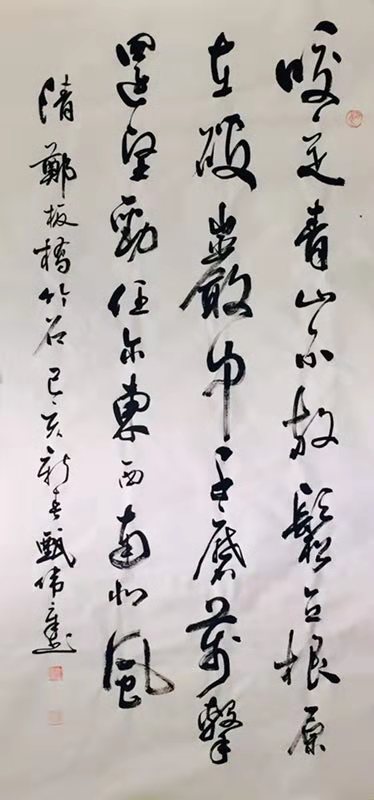 咬定青山不放鬆立根原
在破巖中千磨萬擊
還堅勁任尔東西南北風
清鄭板橋竹石己亥新春甄伟